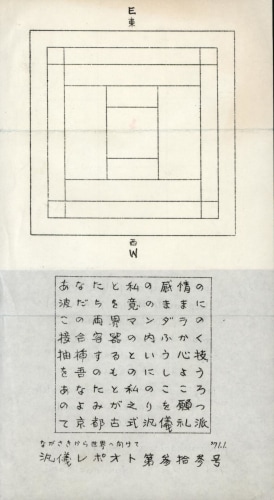 E
東
あなたと私の感情の
波だちを竟のままに
この両界マンダラの
接合容器の内ふかく
抽捕するという心技
を吾のものにしよう
あなたとこのこころ
のよみがえりを願っ
て京都古式汎儀礼派
西
W
ながさきから世界へ向けて '71.1.
汎儀レポオト第参拾参号